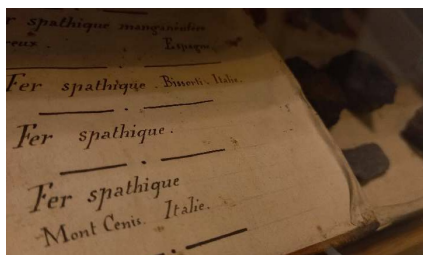 r spathique manganésifère
reux. Espagne.
Fer spathique. Italie.
Fer spathique.
Fer spathique
Mont Cenis. Italie.